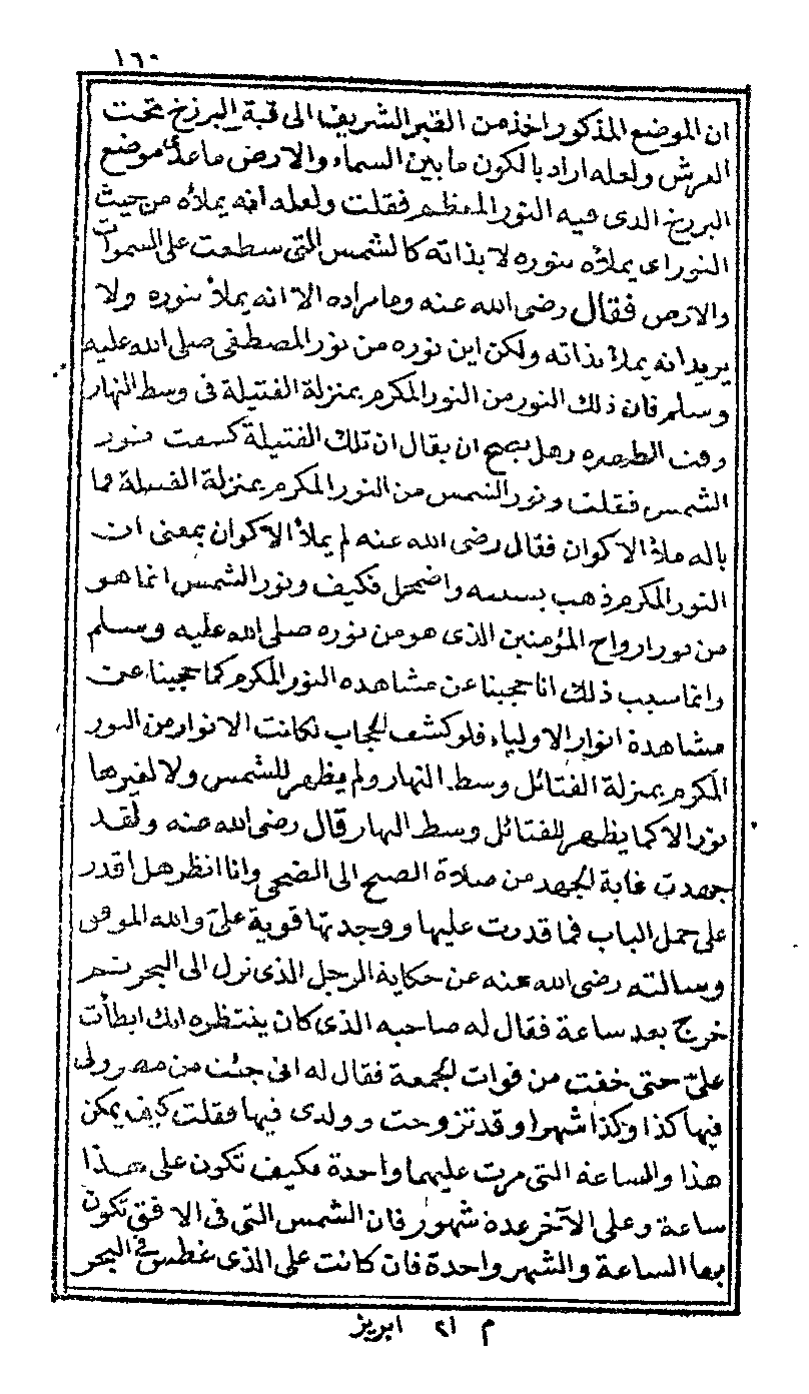 ١٦٠
ان الموضع المذكور اخذ من القبر الشريف الى قبة البرزخ تحت
العرش ولعله اراد بالكون ما بين السماء والارض ما عدا موضع
البرزخ الذى فيه النور المعظم فقلت ولعله انه يملاه من حيث
النور اى يملاه بنوره لا بذاته كالشمس التى سطعت على السموات
والارض فقال رضى الله عنه وما مراده الا انه يملا بنوره ولا
يريد انه يملا بذاته ولكن اين نوره من نور المصطفى صلى الله عليه
وسلم فان ذلك النور من النور المكرم بمنزلة الفتيلة فى وسط النهار
وقت الظهيرة وهل يصح ان يقال ان تلك الفتيلة كسفت بنور
الشمس فقلت ونور الشمس من النور المكرم بمنزلة الفتيلة فما
باله ملأ الاكوان فقال رضى الله عنه لم يملأ الاكوان بمعنى ان
النور المكرم ذهب بسببه واضمحل فكيف ونور الشمس انما هو
من نور ارواح المؤمنين الذى هو من نوره صلى الله عليه وسلم
وانما سبب ذلك انا حجبنا عن مشاهدة النور المكرم كما حجبنا عن
مشاهدة انوار الاولياء فلو كشف الحجاب لكانت الانوار من النور
المكرم بمنزلة الفتائل وسط النهار ولم يظهر للشمس ولا لغيرها
نور الا كما يظهر للفتائل وسط النهار قال رضى الله عنه ولقد
جهدت غاية الجهد من صلاة الصبح الى الضحى وانا انظر هل اقدر
على حمل الباب فما قدرت عليها ووجدتها قوية علىّ والله الموفق
وسالته رضى الله عنه عن حكاية الرجل الذى نزل الى البحر ثم
خرج بعد ساعة فقال له صاحبه الذى كان ينتظره انك ابطأت
علىّ حتى خفت من فوات الجمعة فقال له انى جئت من مصر ولى
فيها كذا وكذا شهرا وقد تزوجت وولدى فيها فقلت كيف يمكن
هذا والساعة التى مرت عليهما واحدة فكيف تكون على هذا
ساعة وعلى الآخر عدة شهور فان الشمس التى فى الافق تكون
بها الساعة والشهر واحدة فان كانت على الذى غطس فى البحر
م ٢١ ابريز